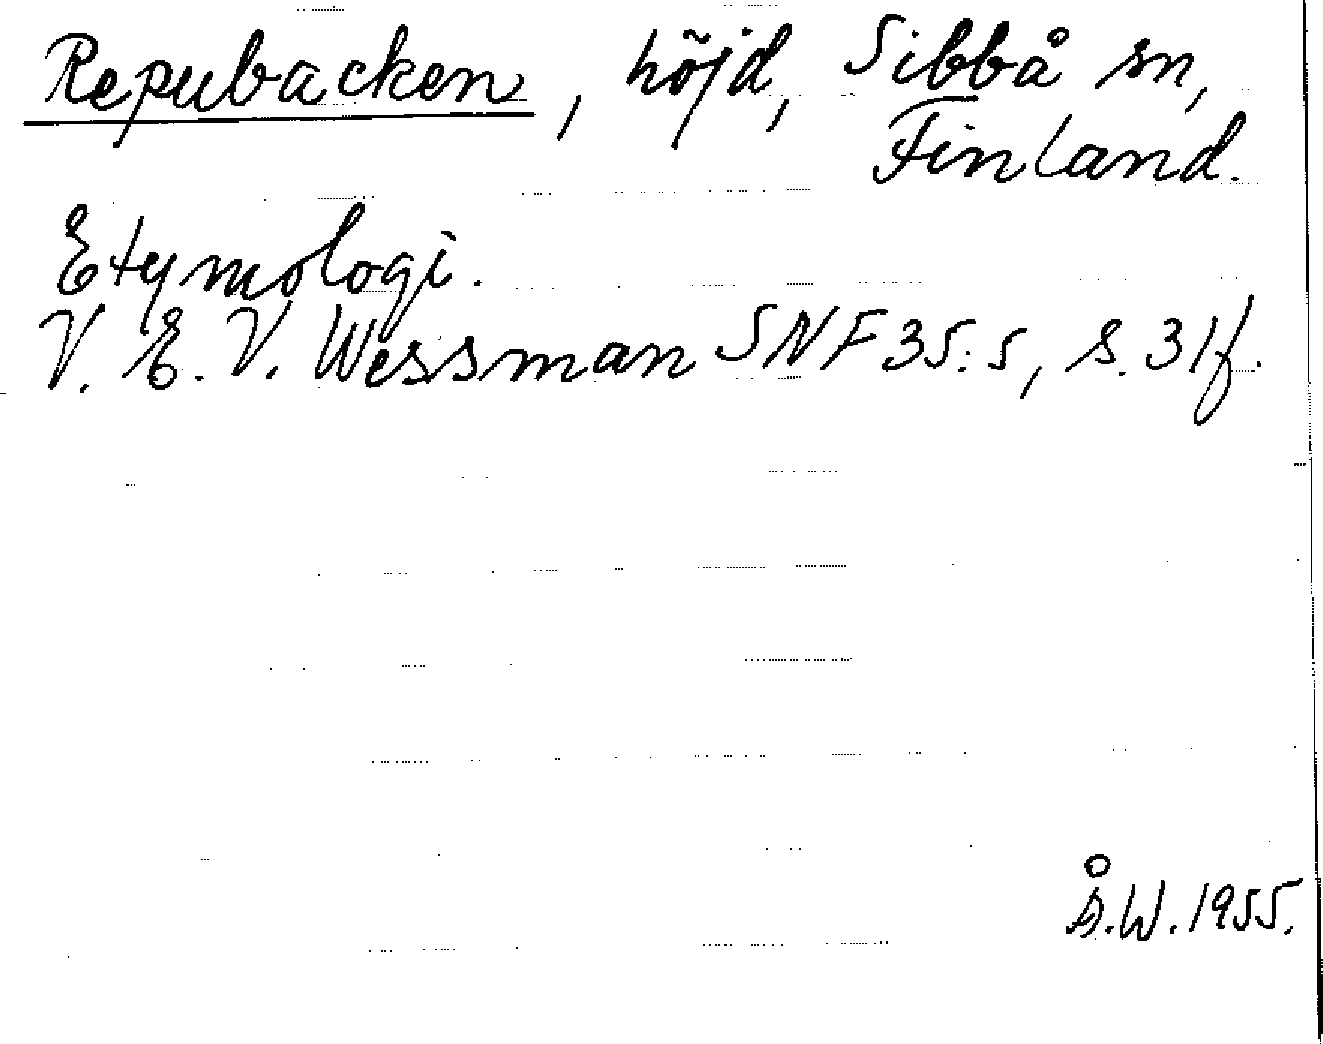 Repubacken, höjd, Sibbå sn,
Finland.
Etymologi.
V. E. V. Wessman SNF 35:5, s. 31f.
Å.W. 1955.